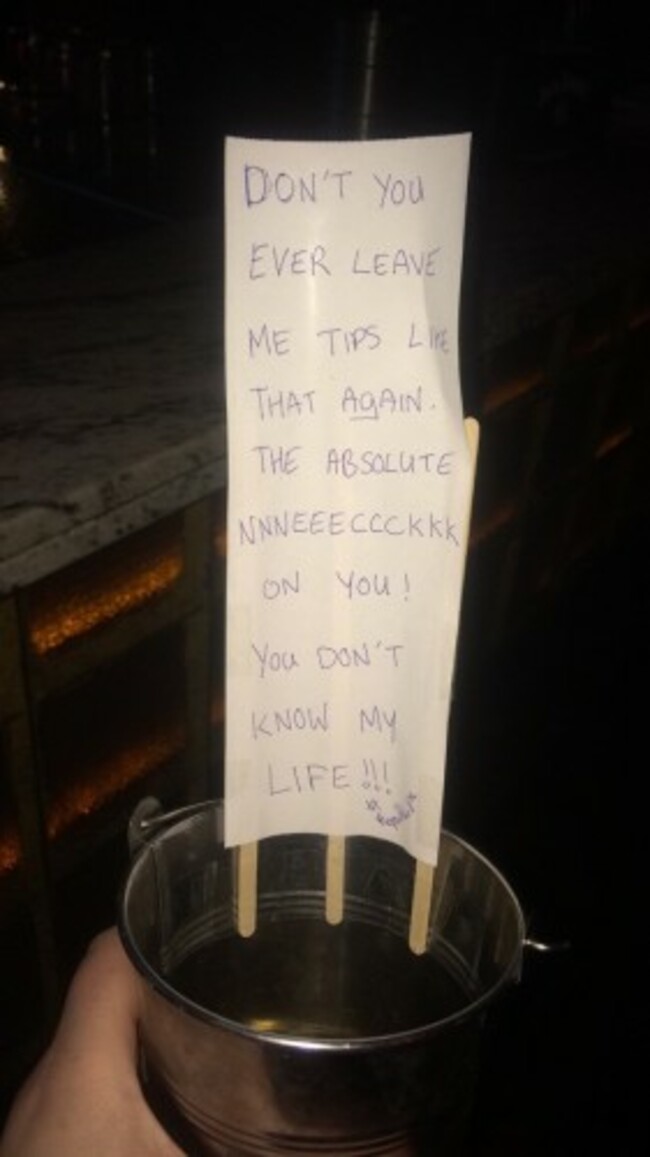 DON'T YOU
EVER LEAVE
ME TIPS LIKE
THAT AgAIN.
THE ABSOLUTE
NNNEEECCCKKK
ON YOU!
YOU DON'T
KNOW MY
LIFE!!!